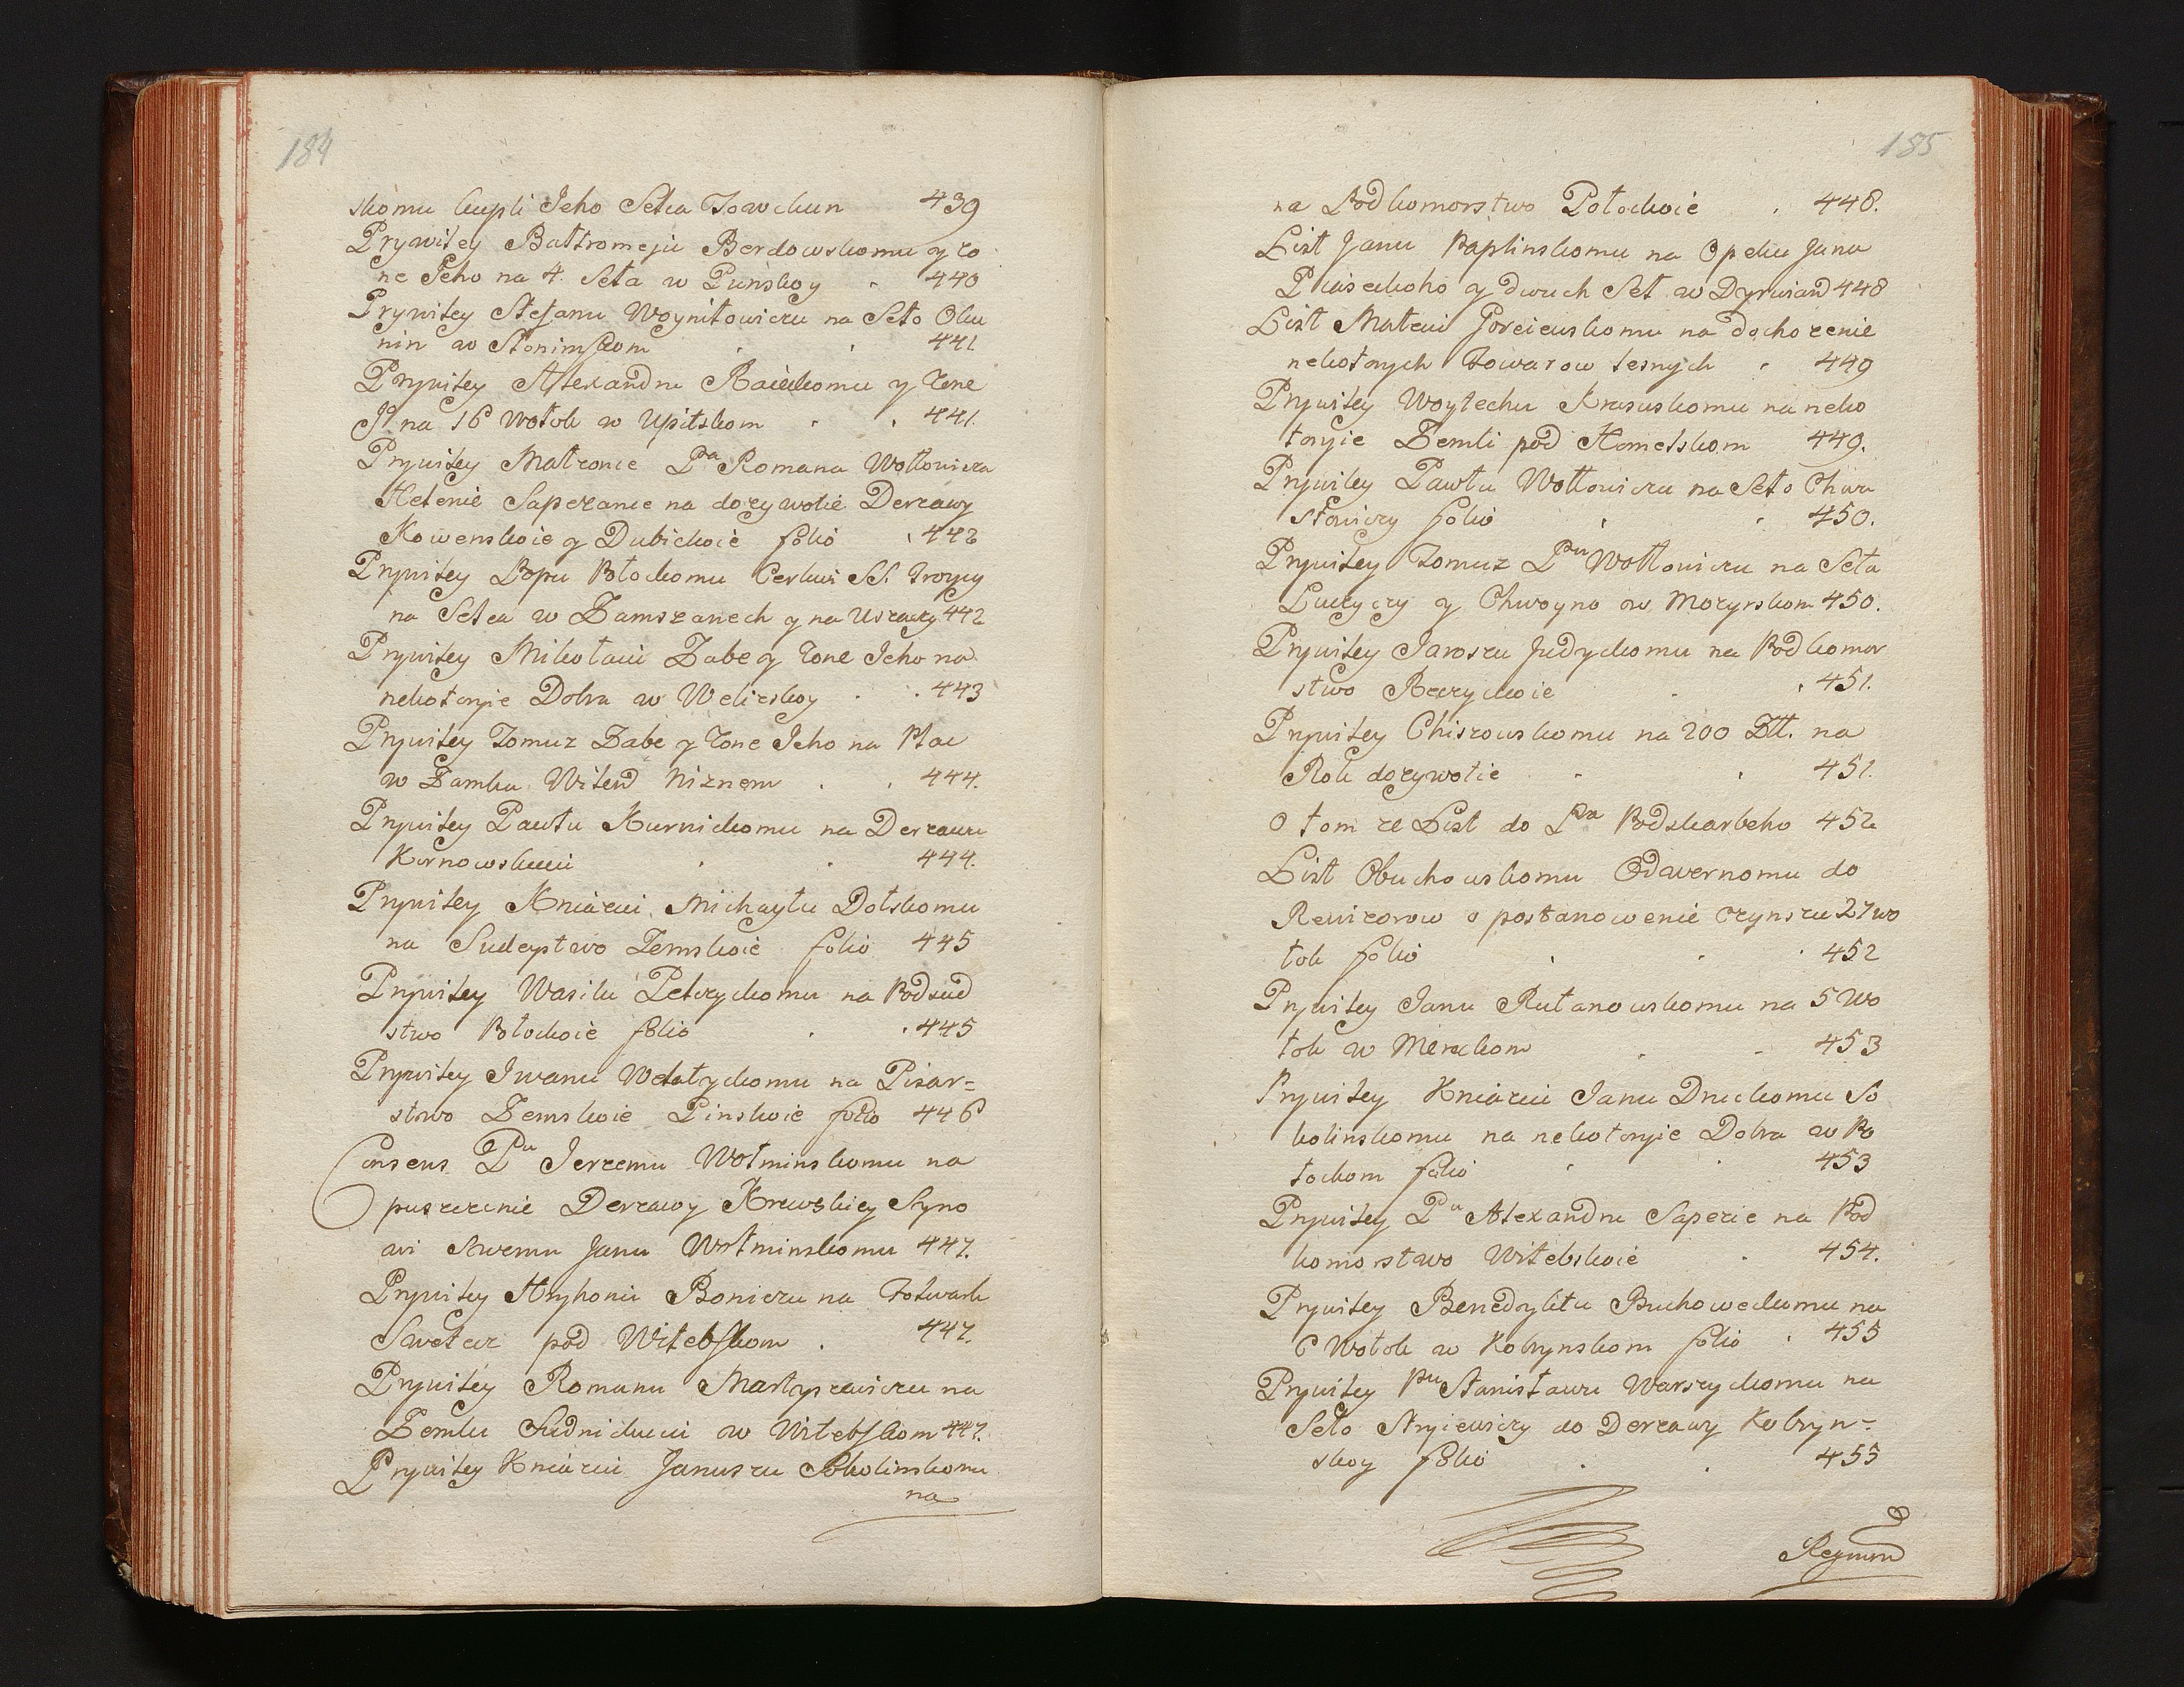 184
skomu kupli Jeho Sełca Towckun 439
Prywiley Bałtromeju Berdowskomu y żo
ne Jeho na 4. Seła w Puńskoy 440
Prywiley Stefanu Woyniłowiczu na Seło Oku
nin w Słonimskom 441
Prywiley Alexandru Raieckomu y żone
Jº na 16 Wołok w Upitskom 441.
Prywiley Małżonce Pna Romana Wołłowicza
Helenie Sapeżance na dożywotie Derżawy
Kowenskoie y Dubickoie folio 442
Prywiley Popu Połockomu Cerkwi SS. Troycy
na Sełca w Zamszanech y na Uszaczy 442
Prywiley Mikołaiu Zabe y żone Jeho na
nekotoryie Dobra w Weliżskoy 443
Prywiley Tomuz Zabe y żone Jeho na Płac
w Zamku Witeb Niżnem 444.
Prywiley Pawłu Kurnickomu na Derżawu
Kurnowskuiu 444.
Prywiley Kniaziu Michayłu Dolskomu
na Sudeystwo Zemskoie folio 445
Prywiley Wasilu Petryckomu na Podsud
stwo Połockoie folio 445
Prywiley Iwanu Wełatyckomu na Pisar=
stwo Zemskoie Pinskoie folio 446
Consens Pnu Jerzemu Wołminskomu na
puszczenie Derżawy Krewskiey Syno
wi Swemu Janu Wołminskomu 447.
Prywiley Hryhoriu Boniczu na Folwark
Swetcz pod Witebskom 447.
Prywiley Romanu Martyzawiczu na
Zemlu Sudnickuiu w Witebskom 447.
Prywiley Kniaziu Januszu Sokolinskomu
na
185
na Podkomorstwo Połockoie 448.
List Janu Kaplinskomu na Opeku Jana
Piaseckoho y dwuch Seł w Dyrwian 448
List Mateiu Goreiewskomu na dochożenie
nekotorych Towarow lesnych 449
Prywiley Woytechu Krasuskomu na neko
toryie Zemli pod Homelskom 449.
Prywiley Pawłu Wołłowiczu na Seło Chwa
stowiczy folio 450.
Prywiley Tomuz Pnu Wołłowiczu na Seła
Luczyczy y Chwoyno w Mozyrskom 450.
Prywiley Jaroszu Judyckomu na Podkomor
stwo Reczyckoie 451.
Prywiley Chiszowskomu na 200 Złł. na
Rok dożywotie 451.
O tom że List do Pna Podskarbeho 452
List Obuchowskomu Odwernomu do
Rewizorow o postanowenie czynszu 27 wo
łok folio 452
Prywiley Janu Rutanowskomu na 5 Wo
łok w Mereckom 453
Prywiley Kniaziu Janu Druckomu So
kolinskomu na nekotoryie Dobra w Po
łockom folio 453
Prywiley Pnu Alexandru Sapezie na Pod
komorstwo Witebskoie 454.
Prywiley Benedyktu Buchoweckomu na
6 Wołok w Kobrynskom folio 455
Prywiley Pnu Stanisławu Warszyckomu na
Seło Stryiewiczy do Derżawy Kobryn=
skoy folio 455